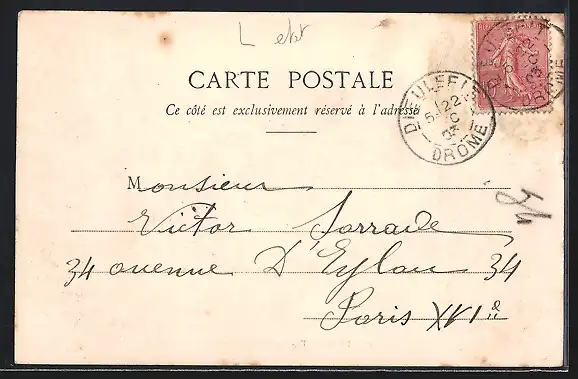 L etat
CARTE POSTALE
Ce côté est exclusivement réservé à l'adresse
DIEULEFIT
5 22
DROME
Monsieur
Victor
34 avenue D'Eylau 34
Paris XVIe